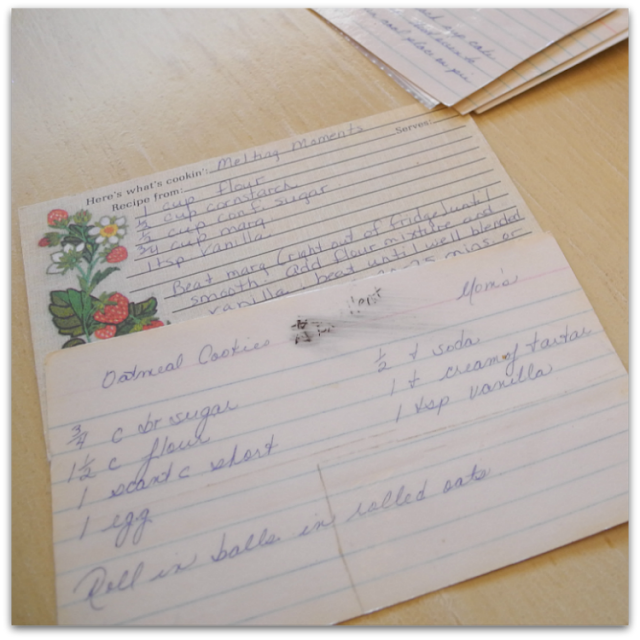 Here's what's cookin': Melting Moments Serves:
Recipe from:
1 cup flour
½ cup cornstarch
½ cup conf. sugar
3/4 cup marg
1 tsp vanilla
Beat marg (right out of fridge) until
smooth. add flour mixture and
vanilla. beat until well blended
mins or
Mom's
Oatmeal Cookies
¾ c br sugar
1½ c flour
1 scant c short
1 egg
½ t soda
1 t cream of tartar
1 tsp vanilla
Roll in balls in rolled oats